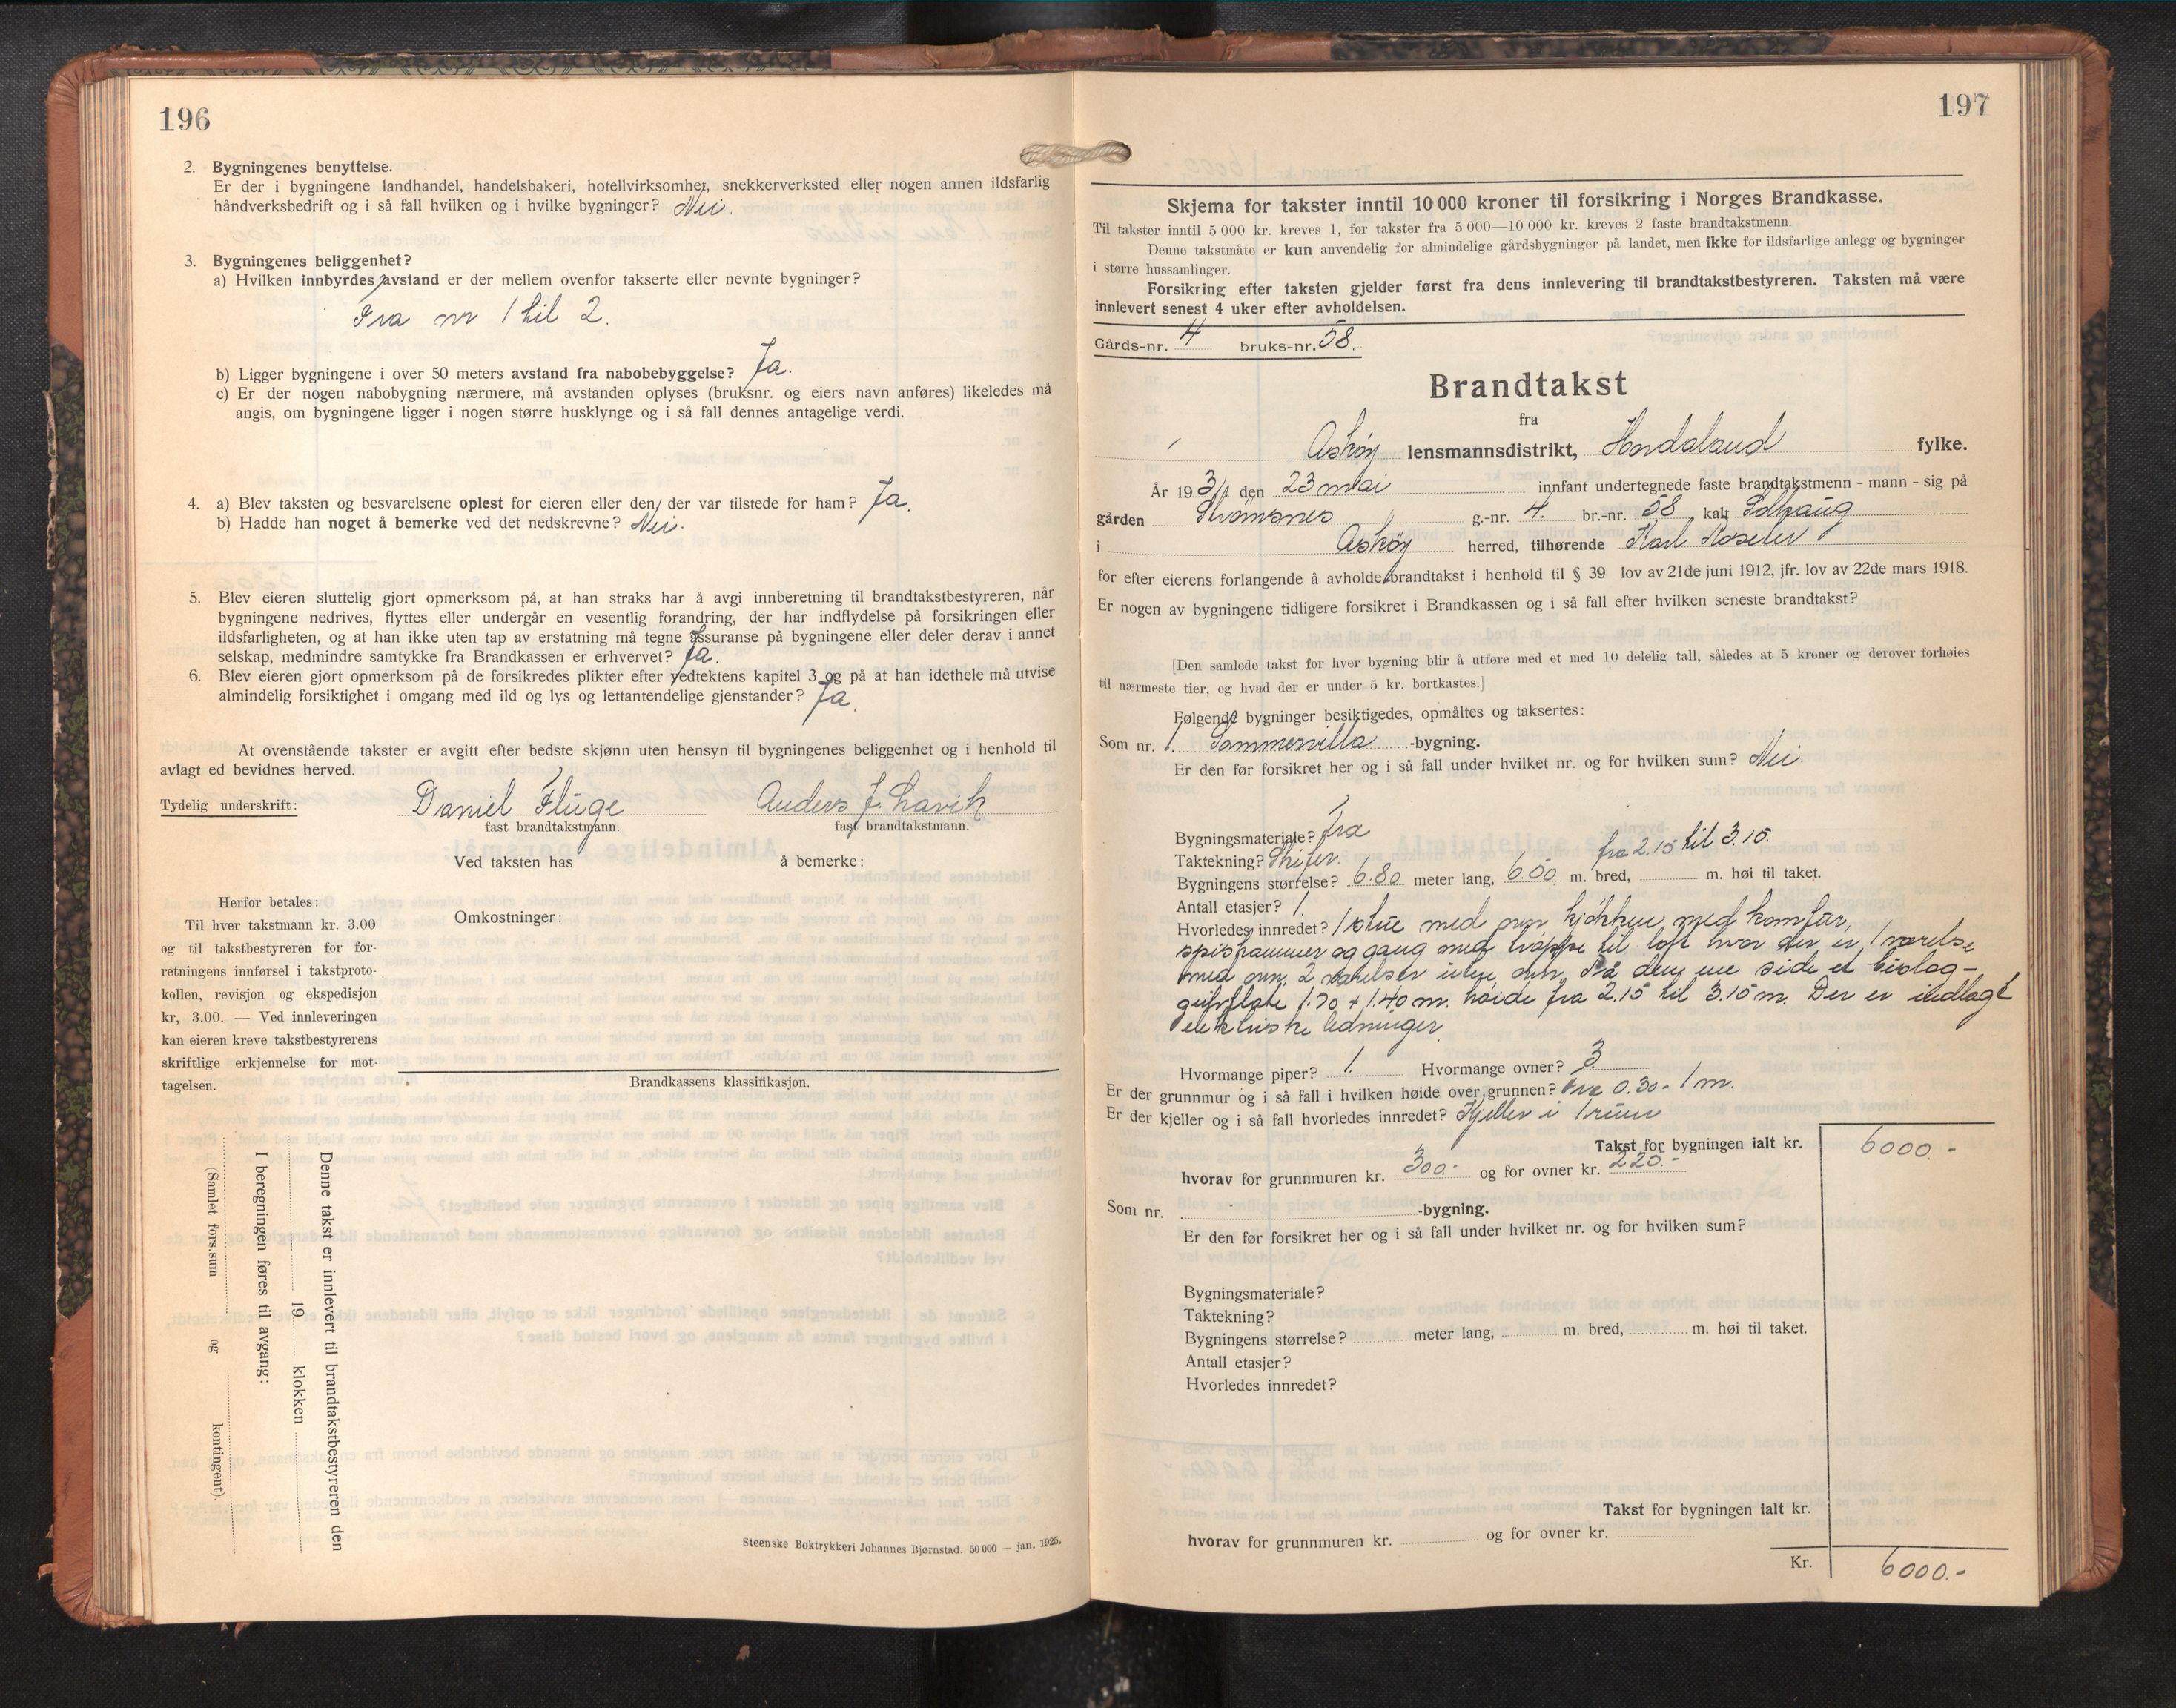 196
2. Bygningenes benyttelse.
Er der i bygningene landhandel, handelsbakeri, hotellvirksomhet, snekkerverksted eller nogen annen ildsfarlig
håndverksbedrift og i så fall hvilken og i hvilke bygninger? Nei.
3. Bygningenes beliggenhet?
a) Hvilken innbyrdes avstand er der mellem ovenfor takserte eller nevnte bygninger?
Fra nr 1 til 2.
b) Ligger bygningene i over 50 meters avstand fra nabobebyggelse? Ja.
c) Er der nogen nabobygning nærmere, må avstanden oplyses (bruksnr. og eiers navn anføres) likeledes må
angis, om bygningene ligger i nogen større husklynge og i så fall dennes antagelige verdi.
4. a) Blev taksten og besvarelsene oplest for eieren eller den/ der var tilstede for ham? Ja.
b) Hadde han noget å bemerke ved det nedskrevne? Nei.
5. Blev eieren sluttelig gjort opmerksom på, at han straks har å avgi innberetning til brandtakstbestyreren, når
bygningene nedrives, flyttes eller undergår en vesentlig forandring, der har indflydelse på forsikringen eller
ildsfarligheten, og at han ikke uten tap av erstatning må tegne assuranse på bygningene eller deler derav i annet
selskap, medmindre samtykke fra Brandkassen er erhvervet? Ja.
6. Blev eieren gjort opmerksom på de forsikredes plikter efter vedtektens kapitel 3 og på at han idethele må utvise
almindelig forsiktighet i omgang med ild og lys og lettantendelige gjenstander? Ja.
At ovenstående takster er avgitt efter bedste skjønn uten hensyn til bygningenes beliggenhet og i henhold til
avlagt ed bevidnes herved.
Tydelig underskrift: Daniel Fluge Anders J. Lavik
fast brandtakstmann. fast brandtakstmann.
Ved taksten has å bemerke:
Herfor betales:
Til hver takstmann kr. 3.00
og til takstbestyreren for for-
retningens innførsel i takstproto-
kollen, revisjon og ekspedisjon
kr, 3.00. — Ved innleveringen
kan eieren kreve takstbestyrerens
skriftlige erkjennelse for mot-
tagelsen.
Omkostninger:
Brandkassens klassifikasjon.
Denne takst er innlevert til brandtakstbestyreren den
19 klokken
I beregningen føres til avgang:
(Samlet fors.sum og kontingent).
Steenske Boktrykkeri Johannes Bjørnstad. 50 000 — jan. 1925.
197
Skjema for takster inntil 10 000 kroner til forsikring i Norges Brandkasse.
Til takster inntil 5 000 kr. kreves 1, for takster fra 5 000—10 000 kr. kreves 2 faste brandtakstmenn.
Denne takstmåte er kun anvendelig for almindelige gårdsbygninger på landet, men ikke for ildsfarlige anlegg og bygninger
i større hussamlinger.
Forsikring efter taksten gjelder først fra dens innlevering til brandtakstbestyreren. Taksten må være
innlevert senest 4 uker efter avholdelsen.
Gårds-nr. 4 bruks-nr. 58.
Brandtakst
fra
Askøy lensmannsdistrikt, Hordaland fylke.
År 19 den 23 mai innfant undertegnede faste brandtakstmenn - mann - sig på
gården Strømsnes g.-nr. 4. br.-nr. 58 kalt Solhaug
i Askøy herred, tilhørende Karl
for efter eierens forlangende å avholde brandtakst i henhold til § 39 lov av 21de juni 1912, jfr. lov av 22de mars 1918.
Er nogen av bygningene tidligere forsikret i Brandkassen og i så fall efter hvilken seneste brandtakst?
[Den samlede takst for hver bygning blir å utføre med et med 10 delelig tall, således at 5 kroner og derover forhøies
til nærmeste tier, og hvad der er under 5 kr. bortkastes.]
Følgende bygninger besiktigedes, opmåltes og taksertes:
Som nr. 1. Sommervilla -bygning.
Er den før forsikret her og i så fall under hvilket nr. og for hvilken sum? Nei.
Bygningsmateriale? Træ
Taktekning? Skifer. fra 2.15 til 3.15.
Bygningens størrelse? 6.80 meter lang, 6.00 m. bred, m. høi til taket.
Antall etasjer? 1
Hvorledes innredet? 1 stue med ovn, kjøkken med komfur,
spiskammer og gang med trappe til loft hvor der er 1 værelse
med ovn, 2 værelser uten ovn. På den ene side et bislag -
gulvflate 1.70 + 1.40 m. høide fra 2.15 til 3.15 m. Der er indlagt
elektriske ledninger.
Hvormange piper? 1. Hvormange ovner? 3
Er der grunnmur og i så fall i hvilken høide over grunnen? Fra 0.30 - 1 m.
Er der kjeller og i så fall hvorledes innredet? Kjeller i 1 rum
Takst for bygningen ialt kr. 6000.-
hvorav for grunnmuren kr. 300.- og for ovner kr. 220.-
Som nr. -bygning.
Er den før forsikret her og i så fall under hvilket nr. og for hvilken sum?
Bygningsmateriale?
Taktekning?
Bygningens størrelse? meter lang, m. bred, m. høi til taket.
Antall etasjer?
Hvorledes innredet?
Takst for bygningen ialt kr.
hvorav for grunnmuren kr. og for ovner kr.
Kr. 6000.-